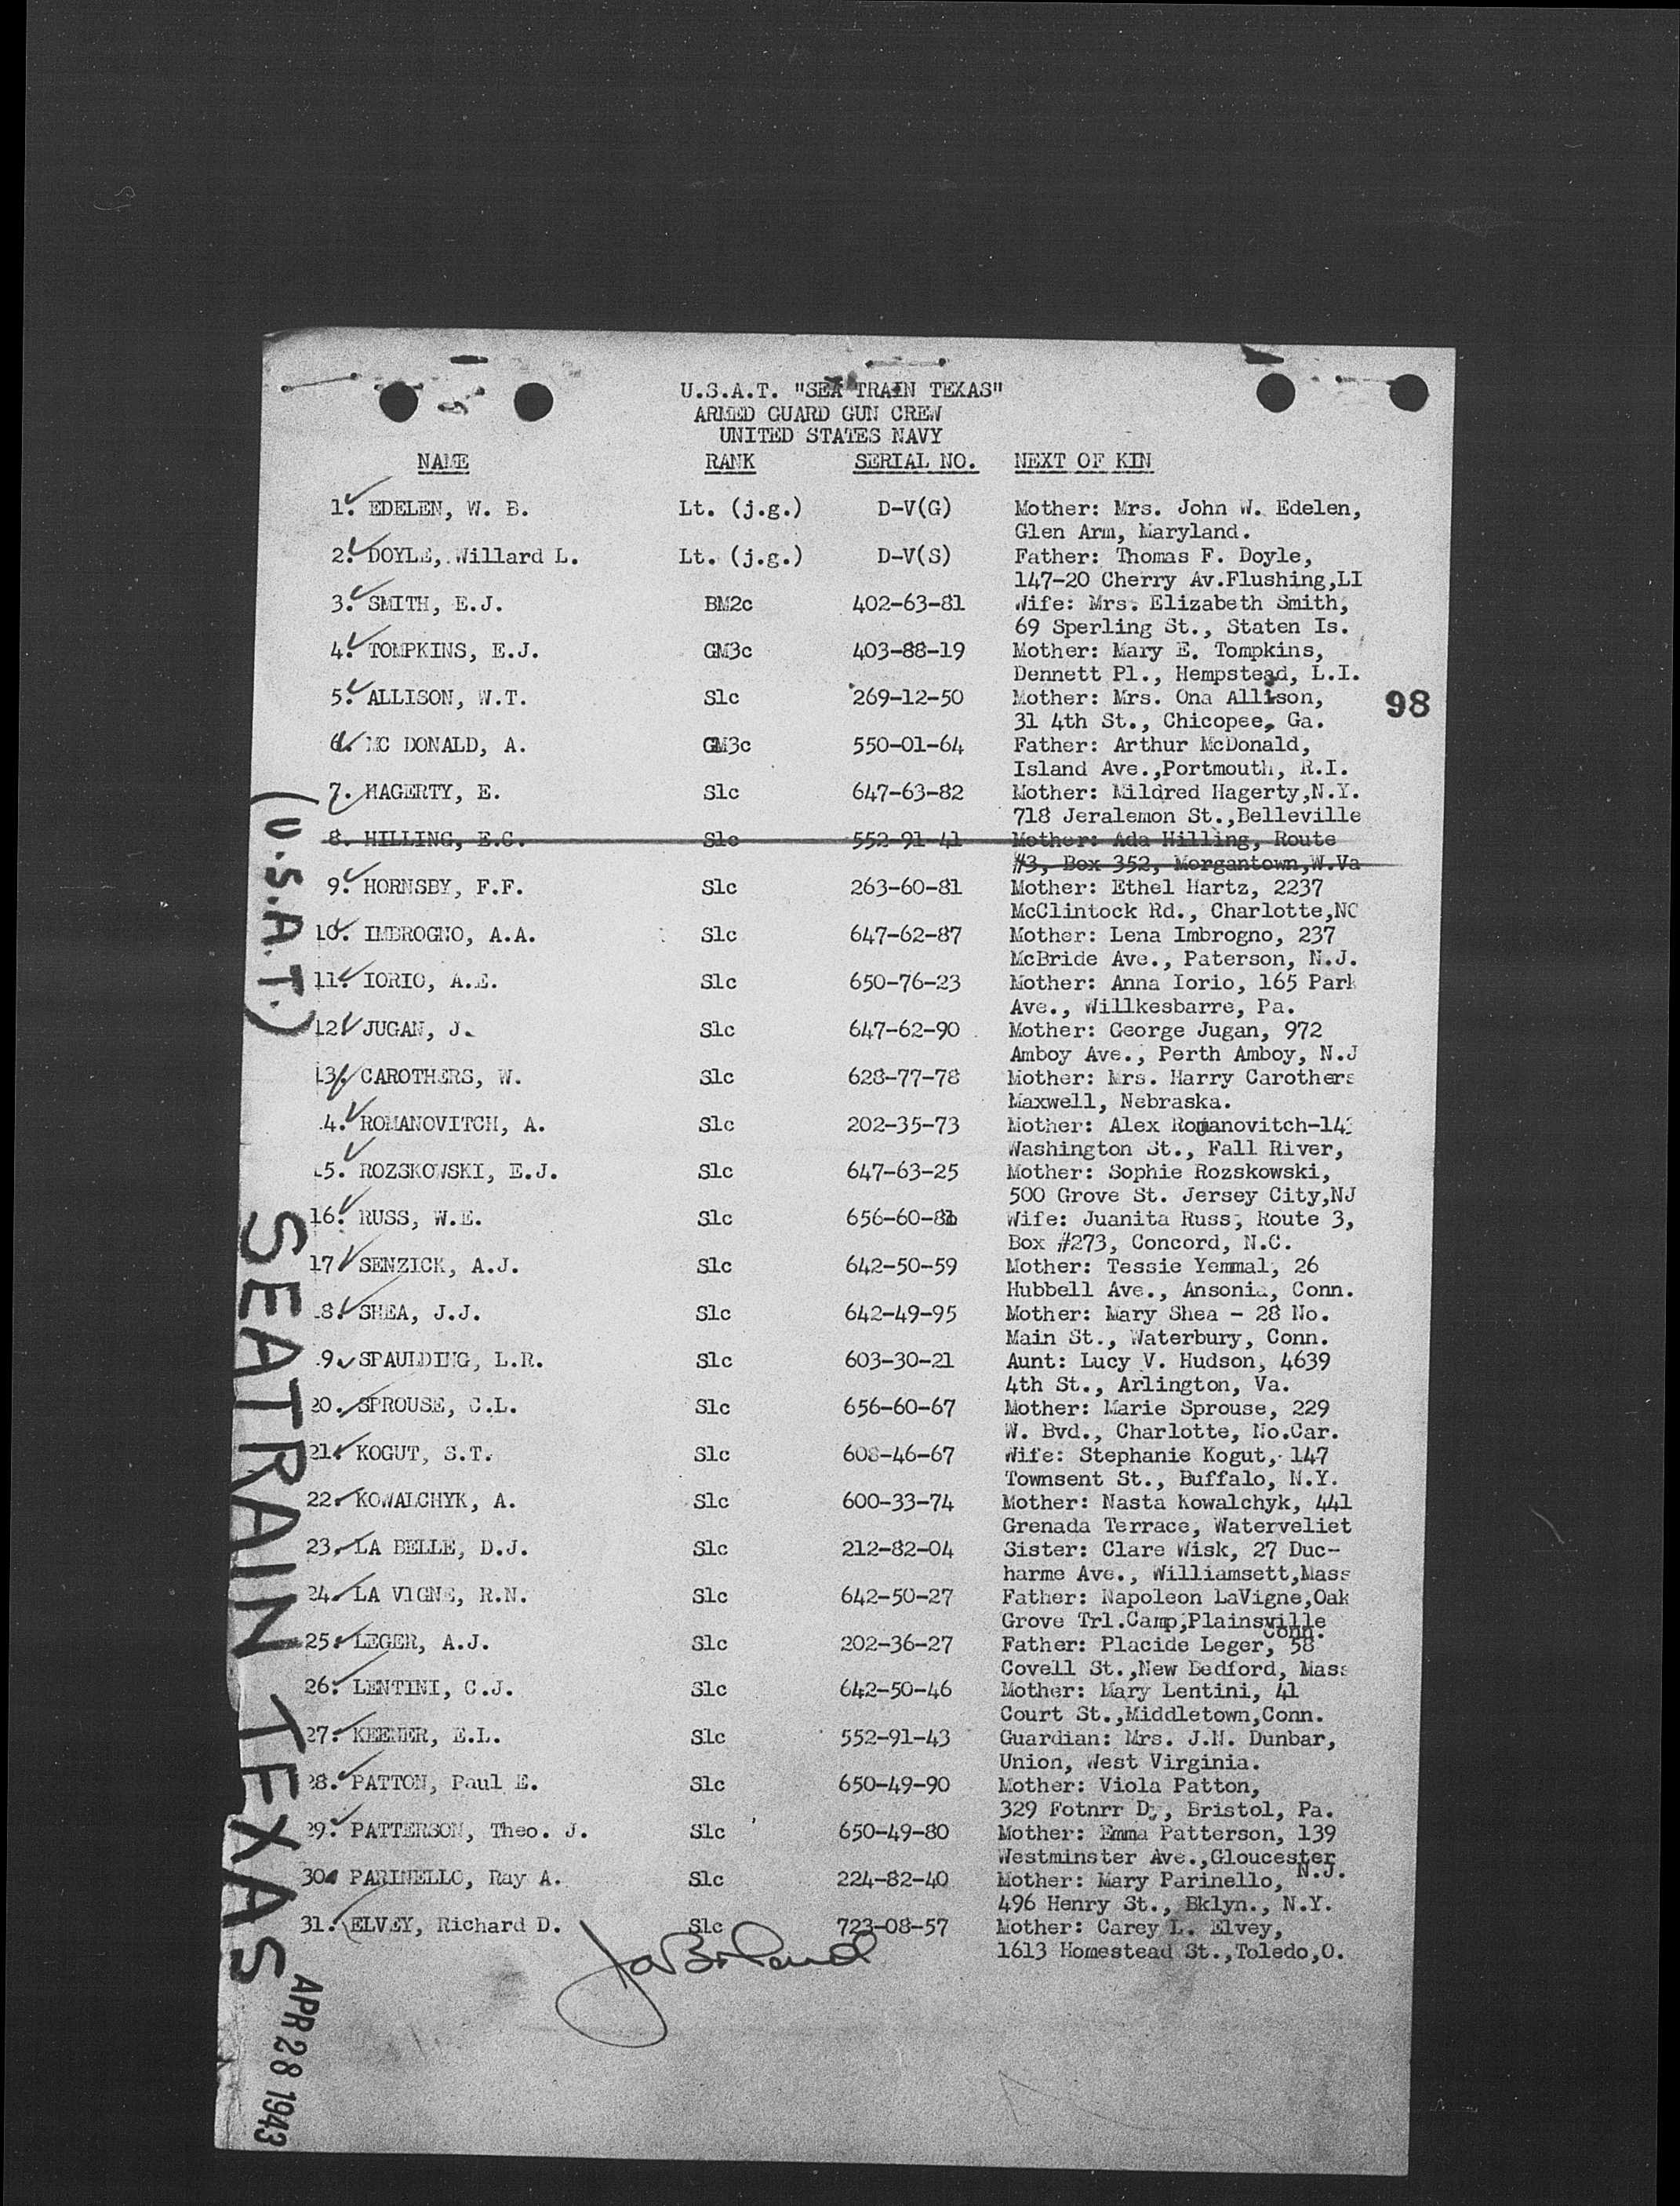 U.S.A.T. "SEA TRAIN TEXAS"
ARMED GUARD GUN CREW
UNITED STATES NAVY
NAME RANK SERIAL NO. NEXT OF KIN
1. EDELEN, W. B. Lt. (j.g.) D-V(G) Mother: Mrs. John W. Edelen,
Glen Arm, Maryland.
2. DOYLE, Willard L. Lt. (j.g.) D-V(S) Father: Thomas F. Doyle,
147-20 Cherry Av.Flushing,LI
3. SMITH, E.J. BM2c 402-63-81 Wife: Mrs. Elizabeth Smith,
69 Sperling St., Staten Is.
4. TOMPKINS, E.J. GM3c 403-88-19 Mother: Mary E. Tompkins,
Dennett Pl., Hempstead, L.I.
5. ALLISON, W.T. S1c 269-12-50 Mother: Mrs. Ona Allison,
31 4th St., Chicopee, Ga.
98
6. MC DONALD, A. GM3c 550-01-64 Father: Arthur McDonald,
Island Ave.,Portmouth, R.I.
7. HAGERTY, E. S1c 647-63-82 Mother: Mildred Hagerty,N.Y.
718 Jeralemon St.,Belleville
8. HILLING, E.C. S1c 552-91-41 Mother: Ada Hilling, Route
#3, Box 352, Morgantown,W.Va
9. HORNSBY, F.F. S1c 263-60-81 Mother: Ethel Hartz, 2237
McClintock Rd., Charlotte,NC
10. IMBROGNO, A.A. S1c 647-62-87 Mother: Lena Imbrogno, 237
McBride Ave., Paterson, N.J.
11. IORIO, A.E. S1c 650-76-23 Mother: Anna Iorio, 165 Park
Ave., Willkesbarre, Pa.
12. JUGAN, J. S1c 647-62-90 Mother: George Jugan, 972
Amboy Ave., Perth Amboy, N.J
13. CAROTHERS, W. S1c 628-77-78 Mother: Mrs. Harry Carothers
Maxwell, Nebraska.
4. ROMANOVITCH, A. S1c 202-35-73 Mother: Alex Romanovitch-14
Washington St., Fall River,
15. ROZSKOWSKI, E.J. S1c 647-63-25 Mother: Sophie Rozskowski,
500 Grove St. Jersey City,NJ
16. RUSS, W.E. S1c 656-60-81 Wife: Juanita Russ, Route 3,
Box #273, Concord, N.C.
17 SENZICK, A.J. S1c 642-50-59 Mother: Tessie Yemmal, 26
Hubbell Ave., Ansonia, Conn.
8. SHEA, J.J. S1c 642-49-95 Mother: Mary Shea - 28 No.
Main St., Waterbury, Conn.
9. SPAULDING, L.R. S1c 603-30-21 Aunt: Lucy V. Hudson, 4639
4th St., Arlington, Va.
20. SPROUSE, C.L. S1c 656-60-67 Mother: Marie Sprouse, 229
W. Bvd., Charlotte, No.Car.
21. KOGUT, S.T. S1c 608-46-67 Wife: Stephanie Kogut, 147
Townsent St., Buffalo, N.Y.
22. KOWALCHYK, A. S1c 600-33-74 Mother: Nasta Kowalchyk, 441
Grenada Terrace, Waterveliet
23. LA BELLE, D.J. S1c 212-82-04 Sister: Clare Wisk, 27 Duc-
harme Ave., Williamsett,Mass
24. LA VIGNE, R.N. S1c 642-50-27 Father: Napoleon LaVigne,Oak
Grove Trl.Camp,Plainsville
Conn.
25. LEGER, A.J. S1c 202-36-27 Father: Placide Leger, 58
Covell St.,New Bedford, Mass
26. LENTINI, C.J. S1c 642-50-46 Mother: Mary Lentini, 41
Court St.,Middletown,Conn.
27. KEENER, E.L. S1c 552-91-43 Guardian: Mrs. J.H. Dunbar,
Union, West Virginia.
28. PATTON, Paul E. S1c 650-49-90 Mother: Viola Patton,
329 Fotnrr D., Bristol, Pa.
29. PATTERSON, Theo. J. S1c 650-49-80 Mother: Emma Patterson, 139
Westminster Ave.,Gloucester
N.J.
30. PARINELLO, Ray A. S1c 224-82-40 Mother: Mary Parinello,
496 Henry St., Bklyn., N.Y.
31. ELVEY, Richard D. S1c 723-08-57 Mother: Carey L. Elvey,
1613 Homestead St.,Toledo,O.
(U.S.A.T.)
SEATRAIN TEXAS
APR 28 1943